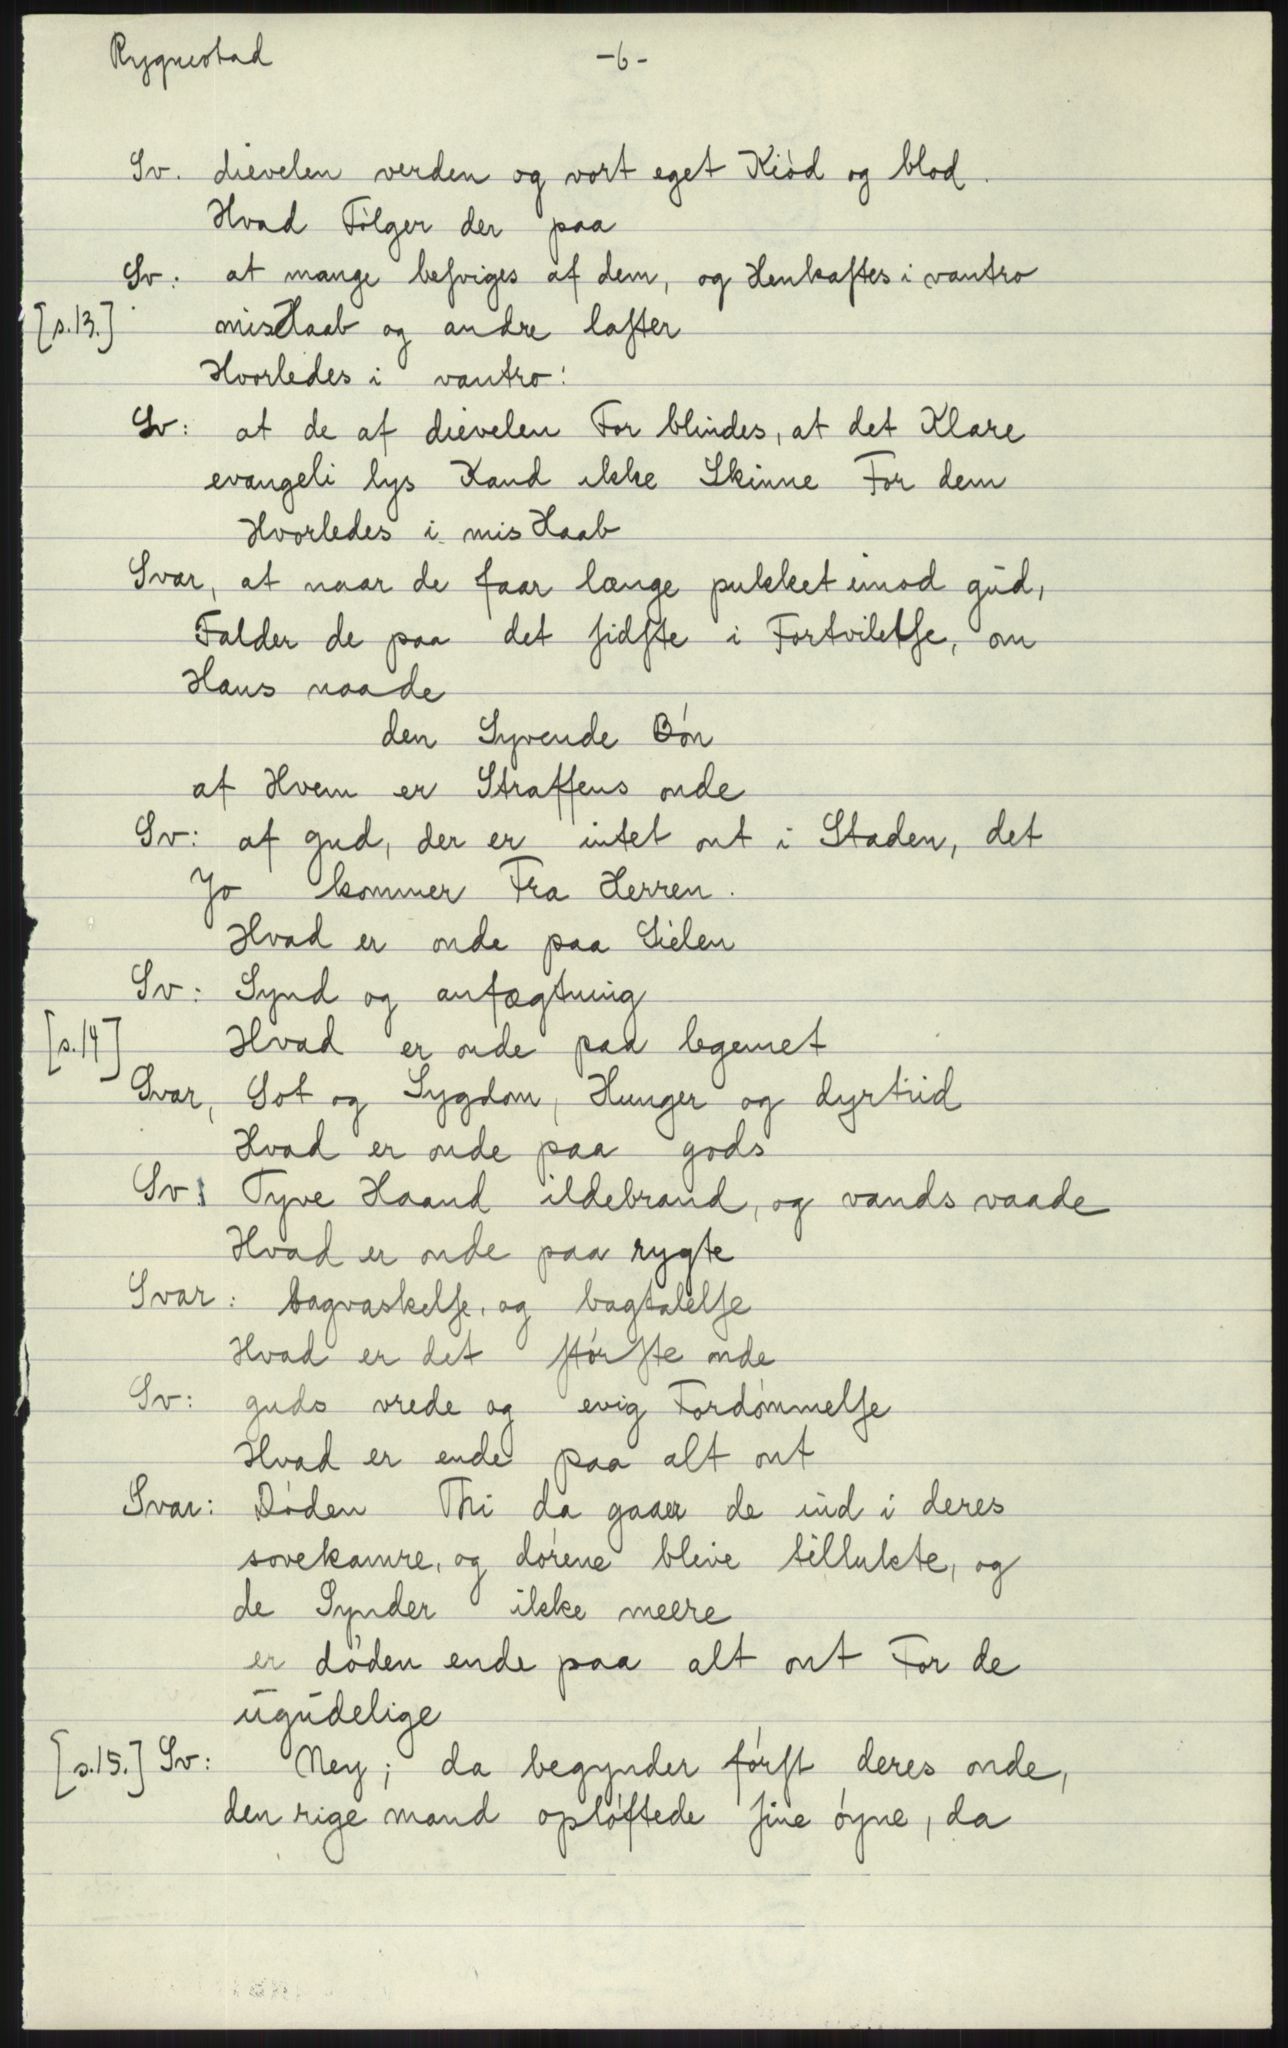 Rygnestad -6-
Sv. dievelen verden og vort eget Kiód og blod.
Hvad Fólger der paa
Sv: at mange beſviges af dem, og Henkaſtes i vantro
[s.13.] misHaab og andre laſter
Hvorledes i vantro:
Sv: at de af dievelen For blindes, at det Klare
evangeli lys Kand ikke Skinne For dem
Hvorledes i mis Haab
Svar, at naar de faar længe pukket imod gúd,
Falder de paa det ſidſte i Fortvilelſe, om
Hans naade
den Syvende Bón
af Hvem er Straffens onde
Sv: af gud, der er intet ont i Staden, det
Jo kommer Fra Herren.
Hvad er onde paa Sielen
Sv: Synd og anfægtning
[s.14] Hvad er onde paa legemet
Svar, Sot og Sygdom, Hunger og dyrtiid
Hvad er onde paa gods
Sv: Tyve Haand ildebrand, og vands vaade
Hvad er onde paa rygte
Svar: bagvaskelſe, og bagtalelſe
Hvad er det ſtórſte onde
Sv: guds vrede og evig Fordómmelſe
Hvad er ende paa alt ont
Svar: Dóden Thi da gaaer de ind i deres
sovekamre, og dórene blive tillukte, og
de Synder ikke meere
er dóden ende paa alt ont For de
úgúdelige
[s.15.] Sv: Ney; da begynder fórſt deres onde,
den rige mand oplóftede ſine óyne, da